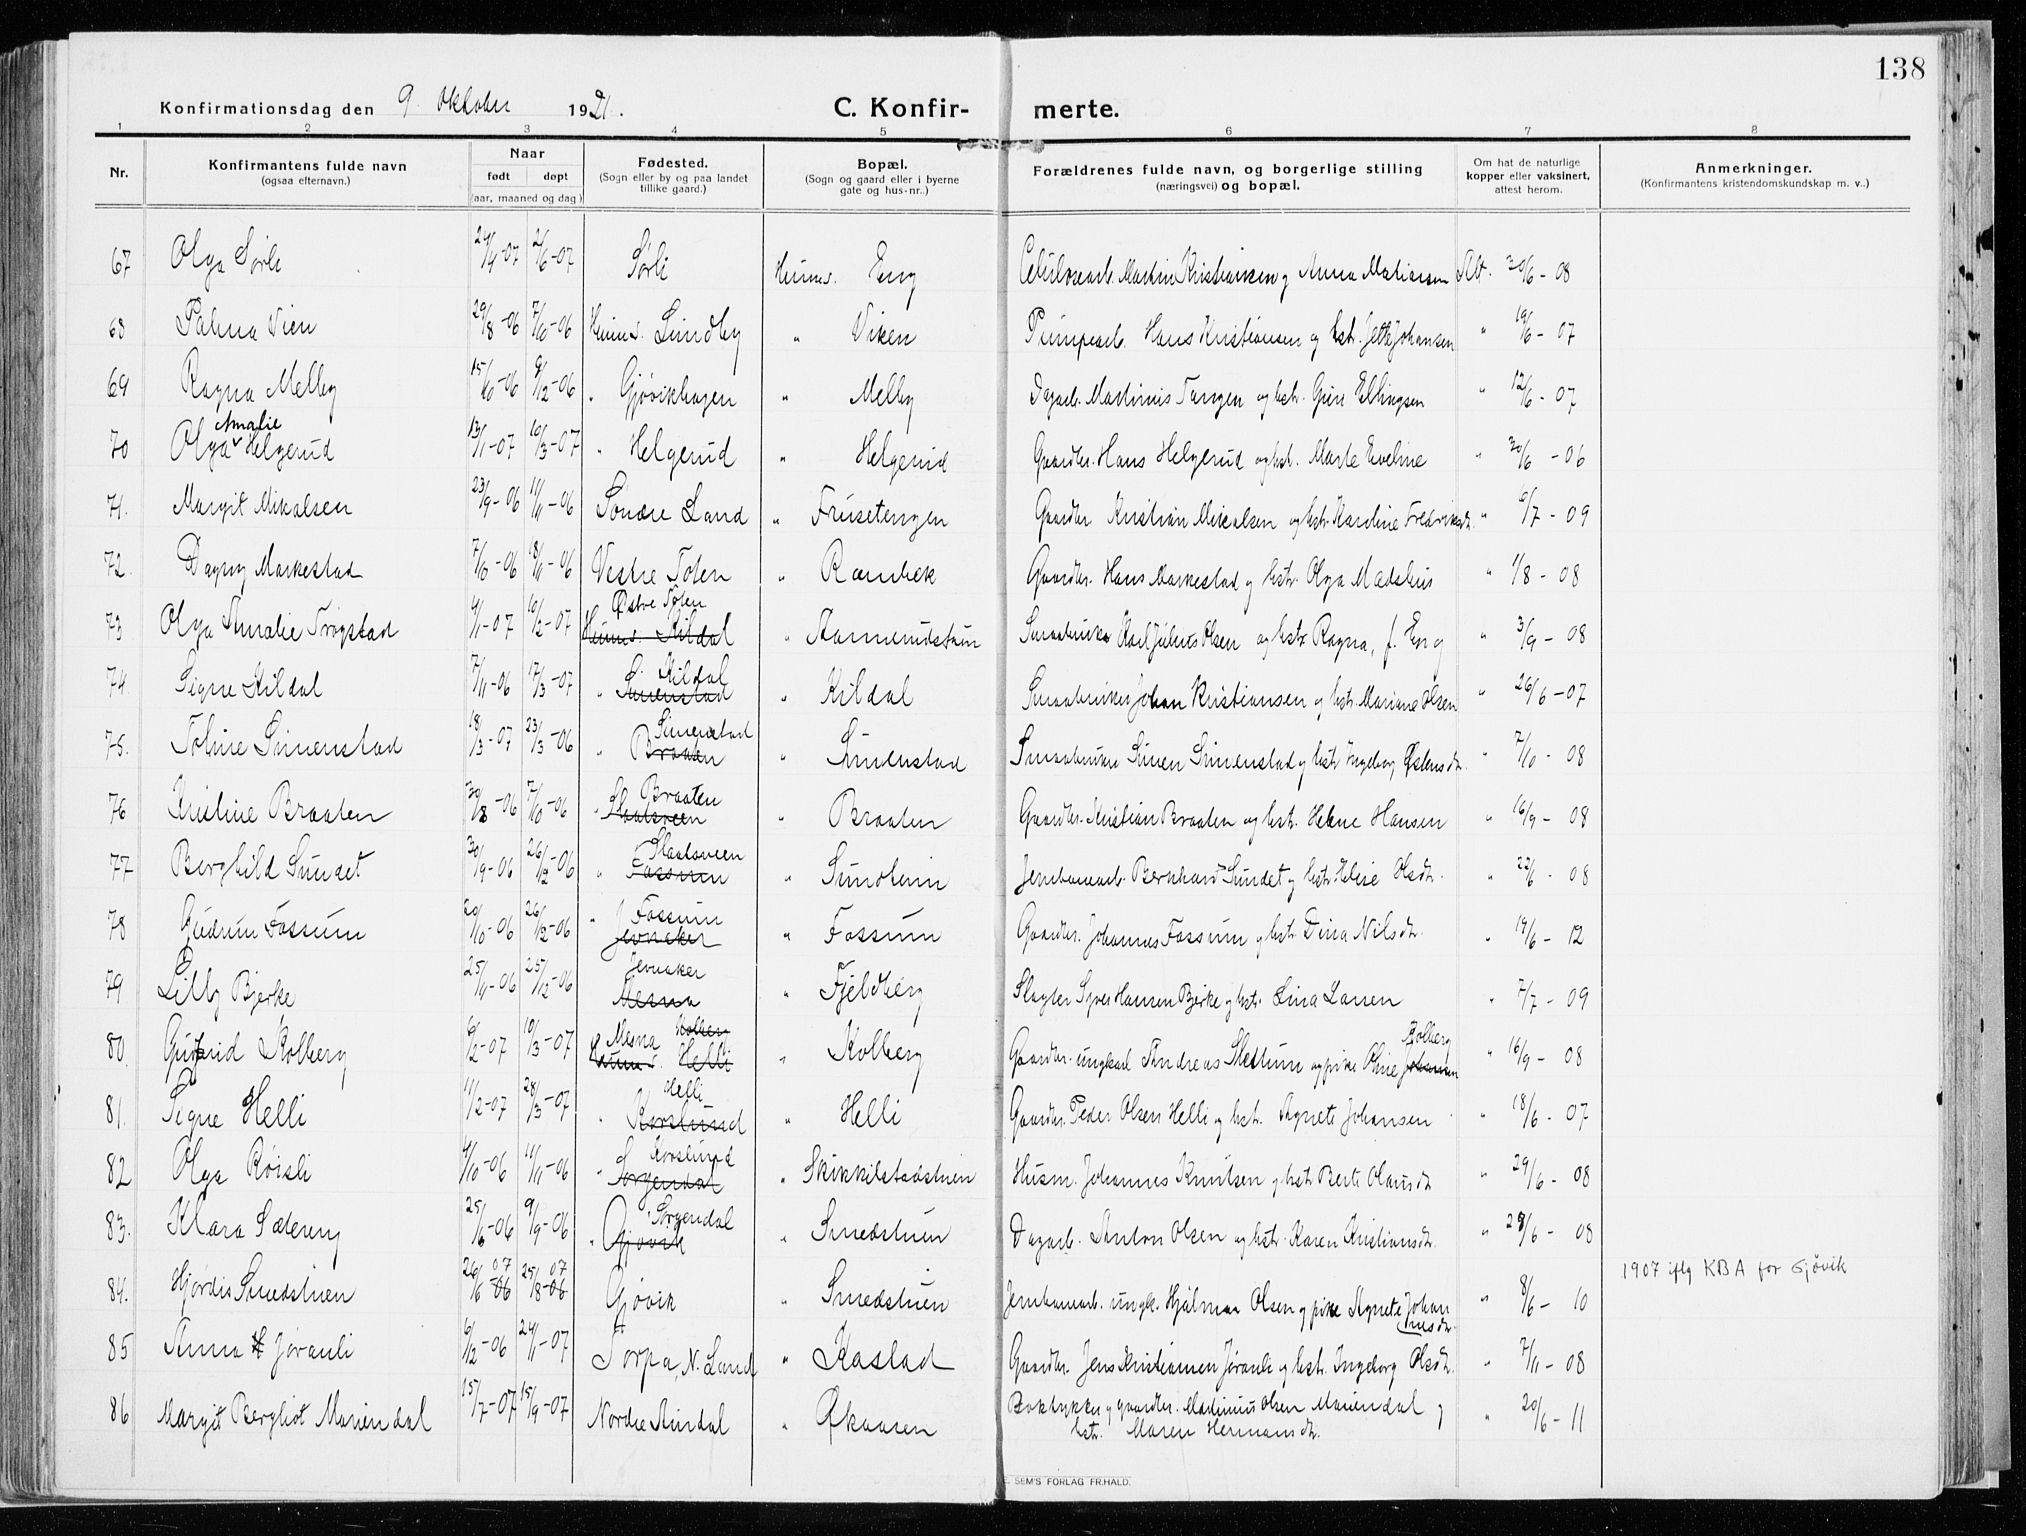 138
Konfirmationsdag den 9. Oktober 1921.
C. Konfir-
merte.
1 2 3 4 5 6 7 8
Nr.
Konfirmantens fulde navn
(ogsaa efternavn.)
Naar
født døpt
(aar, maaned og dag)
Fødested.
(Sogn eller by og paa landet
tillike gaard.)
Bopæl.
(Sogn og gaard eller i byerne
gate og hus-nr.)
Forældrenes fulde navn, og borgerlige stilling
(næringsvei) og bopæl.
Om hat de naturlige
kopper eller vaksinert,
attest herom.
Anmerkninger.
(Konfirmantens kristendomskundskap m. v.)
67 Olga Sørli 24/4-07 2/6-07 Sørli Hunns. Eng Celulosearb. Martin Kristiansen og Anna Matiasen Att. 30/6-08
68 Palma Vien 29/8-06 7/10-06 Hunns. Lundby " Viken Pumpearb. Hans Kristiansen og hstr. Jette Johansen " 19/6-07
69 Ragna Melby 15/10-06 9/12-06 " Gjøvikhagen " Melby Dagarb. Martinius Tangen og hstr. Guri Ellingsen " 12/6-07
Amalie
70 Olga Helgerud 13/1-07 10/3-07 " Helgerud " Helgerud Gaardbr. Hans Helgerud og hst. Marte Eveline " 20/6-06
71. Margit Mikalsen 23/9-06 11/11-06 Søndre Land " Frusetengen Gaardbr Kristian Mikalsen og hstr Karoline Fredriksdt. " 6/7-09
72. Dagny Markestad 7/10-06 18/11-06 Vestre Toten " Rambek Gaardbr. Hans Markestad og hstr. Olga Madshus " 1/8-08
Østre Toten
73 Olga Amalie Trøgstad 4/1-07 10/2-07 Hunns. Kildal " Aamerudstuen Smaabruker Karl Julius Olsen og hstr Ragna, f. Eng " 3/9-08
Kildal
74. Signe Kildal 7/11-06 17/3-07 " Simenstad " Kildal Smaabruker Johan Kristiansen og hstr. Mariane Olsen " 26/6-07
Simenstad
75. Toline Simenstad 18/3-07 23/3-06 " Braaten " Simenstad Smaabruker Simen Simenstad og hstr Ingeborg Østensdt. " 7/10-08
Braaten
76 Kristine Braaten 30/8-06 7/10-06 " Slaatsveen " Braaten Gaardbr. Kristian Braaten og hst. Helene Hansen " 16/9-08
Slaatsveen
77 Borghild Sundet 30/9-06 26/12-06 " Fossum " Jernbanearb. Bernhard Sundet og hstr Helise Olsdt. " 22/6-08
Fossum
78 Gudrun Fossum 20/10-06 26/12-06 " Jevnaker " Fossum Gaardbr. Johannes Fossum og hstr. Dina Nilsdt. " 19/6-12
Jevnaker
79 Lilly Bjerke 25/11-06 25/12-06 Mesna " Fjeldberg Slagter Syver Hansen Bjerke og hstr. Lina Larsen " 7/7-09
Mesna Kolberg Kolberg
80. Gudrid Kolberg 6/2-07 10/3-07 Hunns. Helli " Kolberg Gaardbr. ungkarl Andreas Slettum og pike Oline Johansen " 16/9-08
Helli
81. Signe Helli 11/2-07 28/3-07 " Korslund " Helli Gaardbr. Peder Olsen Helli og hst. Agnete Johansen " 18/6-07
Korslund
82 Olga Røisli 4/10-06 11/11-06 " Sorgendal " Skikkilstadstuen Husm. Johannes Knutsen og hstr Berte Olausdt " 29/6-08
Sorgendal
83. Klara Sætereng 25/6-06 9/9-06 " Gjøvik " Smedstuen Dagarb. Anton Olsen og hstr. Karen Kristiansdt. " 28/6-08
07 07 1907 iflg KBA for Gjøvik
84. Hjørdis Smedstuen 26/6-06 25/8-06 Gjøvik " Smedstuen Jernbanearb. ungk. Hjalmar Olsen og pike Agnete Johan " 8/6-10
nesdt.
85 Anna H Jøranli 6/12-06 24/11-07 Torpa, N. Land " Kastad Gaardbr. Jens Kristiansen Jøranli og hstr. Ingeborg Olsdt. " 7/11-08
86 Margit Bergliot Mariendal 15/7-07 15/9-07 Nordre Aurdal " Økaasen Boktykker og gaardbr. Martinius Olsen Mariendal og " 20/6-11
hstr. Maren Hermansdt.
E. SEM'S FORLAG FR.HALD.